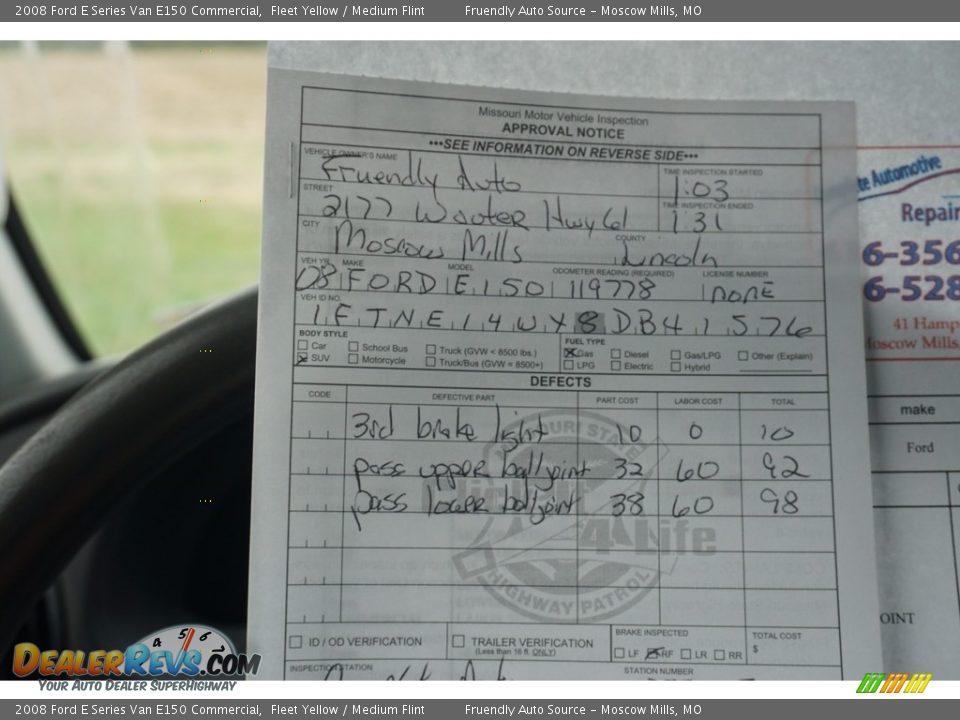 2008 Ford E Series Van E150 Commercial, Fleet Yellow / Medium Flint Fruendly Auto Source – Moscow Mills, MO
Missouri Motor Vehicle Inspection
APPROVAL NOTICE
•••SEE INFORMATION ON REVERSE SIDE•••
VEHICLE OWNER'S NAME TIME INSPECTION STARTED
Fruendly Auto 1:03
STREET TIME INSPECTION ENDED
2177 Hwy 61 1:31
CITY COUNTY
Moscow Mills Lincoln
VEH YR. MAKE MODEL ODOMETER READING (REQUIRED) LICENSE NUMBER
08 FORD E150 119778 none
VEH ID NO.
1FTNE14WX8DB41576
BODY STYLE FUEL TYPE
Car School Bus Truck (GVW < 8500 lbs.) Gas Diesel Gas/LPG Other (Explain)
SUV Motorcycle Truck/Bus (GVW = 8500+) LPG Electric Hybrid
DEFECTS
CODE DEFECTIVE PART PART COST LABOR COST TOTAL
3rd brake light 10 0 10
pass upper ball joint 32 60 92
pass lower ball joint 38 60 98
4 Life
HIGHWAY PATROL
ID / OD VERIFICATION TRAILER VERIFICATION
(Less than 16 ft. ONLY)
BRAKE INSPECTED TOTAL COST
LF RF LR RR $
INSPECTION STATION STATION NUMBER
te Automotive
Repair
6-356
6-528
41 Hamp
Moscow Mills,
make
Ford
OINT
DEALERREVS.COM
YOUR AUTO DEALER SUPERHIGHWAY
2008 Ford E Series Van E150 Commercial, Fleet Yellow / Medium Flint Fruendly Auto Source – Moscow Mills, MO